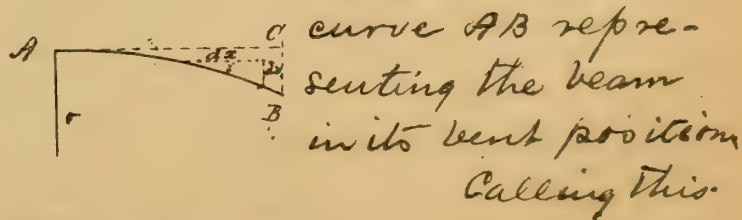 A C curve AB repre-
dx
i
senting the beam
r B in its bent position
Calling this